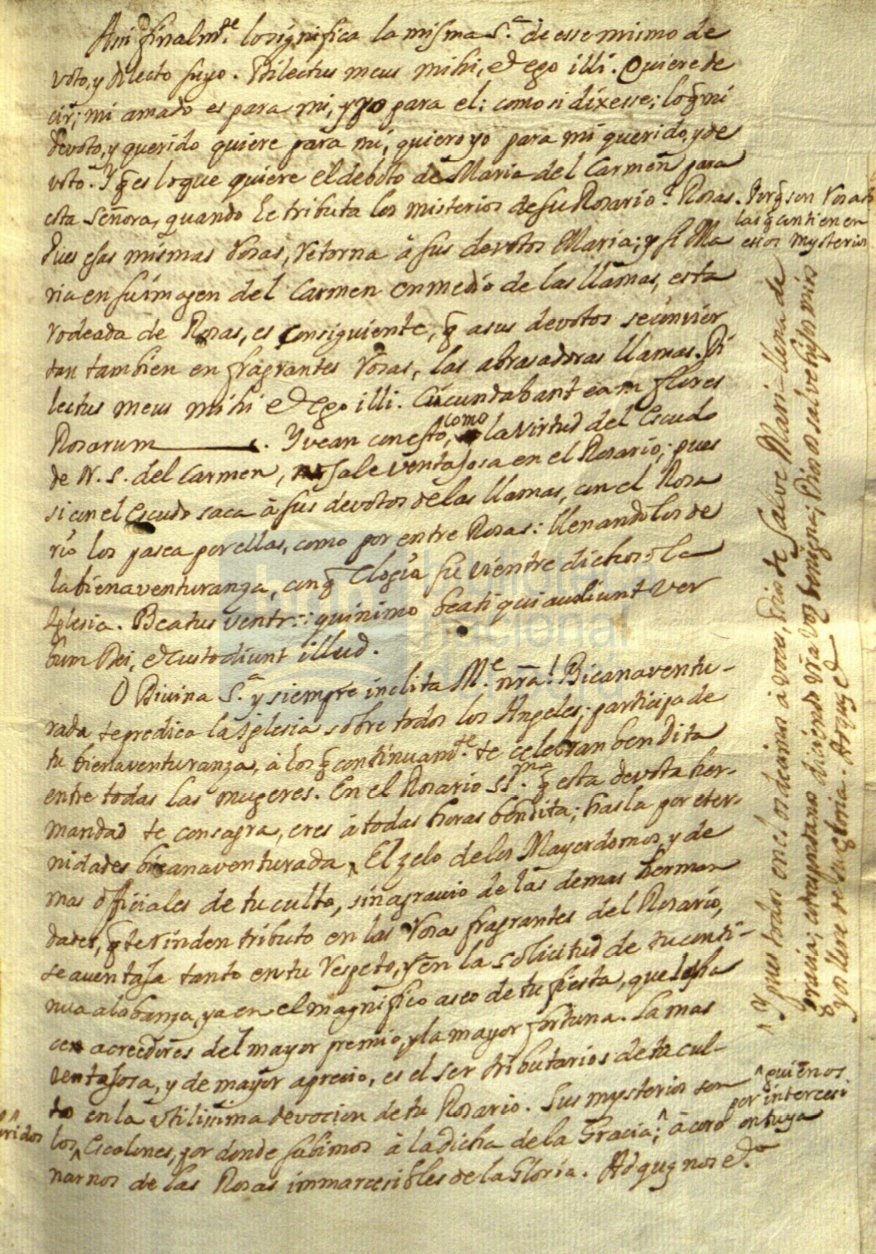 Assi finalm.te lo significa la misma S.ra de esse mismo de
voto, y dilecto suyo. Dilectus meus mihi, et ego illi. Quiere de
cir; mi amado es para mi, y yo para el: como si dixesse; lo q̃ mi
devoto, y querido quiere para mi, quiero yo para mi querido, y de
voto. Y q̃ es lo que quiere el debóto de Maria del Carmen para
esta Señora, quando le tributa los misterios de su Rosario? Rosas.
Pues essas mismas Rosas, retorna à sus devotos Maria; y si Ma
ria en su imagen del Carmen en medio de las llamas, está
rodeada de Rosas, es consiguiente, q̃ a sus devotos se convier
tan tambien en fragrantes rosas, las abrasadoras llamas. Di
lectus meus mihi et ego illi. Circundabant eam flores
Rosarum. Y vean con esto, como la virtud del Escudo
de N. S. del Carmen, sale ventajosa en el Rosario; pues
si con el Escudo saca à sus devotos de las llamas, con el Rosa
rio los passa por ellas, como por entre Rosas: llenandolos de
la bienaventuranza, con q̃ elogia su vientre dichoso la
Iglesia. Beatus venter: quinimo beati qui audiunt ver
bum Dei, et custodiunt illud.
O Divina S.ra y siempre inclita M.e nrã! Bienaventu-
rada te predica la Iglesia sobre todos los Angeles; participa de
tu bienaventuranza, à los q̃ continuam.te te celebran bendita
entre todas las mugeres. En el Rosario SS.mo q̃ esta devota her-
mandad te consagra, eres à todas horas bendita; hasta por eter-
nidades bienaventurada. El zelo de los Mayordomos, y de
mas officiales de tu culto, sin agravio de las demas herman
dades, q̃ te rinden tributo en las rosas fragrantes del Rosario,
se aventaja tanto en tu respeto, y en la solicitud de tu conti-
nua alabanza, ya en el magnifico aseo de tu fiesta, que los ha
cen acreedores del mayor premio, y la mayor fortuna. La mas
ventajosa, y de mayor aprecio, es el ser tributarios de tu cul-
to en la utilissima devocion de tu Rosario. Sus mysterios son
los Escalones, por donde subimos à la dicha de la Gracia; à coro
narnos de las Rosas immarcesibles de la Gloria. Ad quam nos et.a
Porq̃ son rosas
las q̃ contienen
essos mysterios
Y pues todos en el os decimos à voces, Dios te Salve Maria llena de
gracia; corresponda diciendo vrã voz benigna; Dios os salve hijos mios
y os llene de su gloria. Ad quam et.a
quienes
por intercesi
on tuya